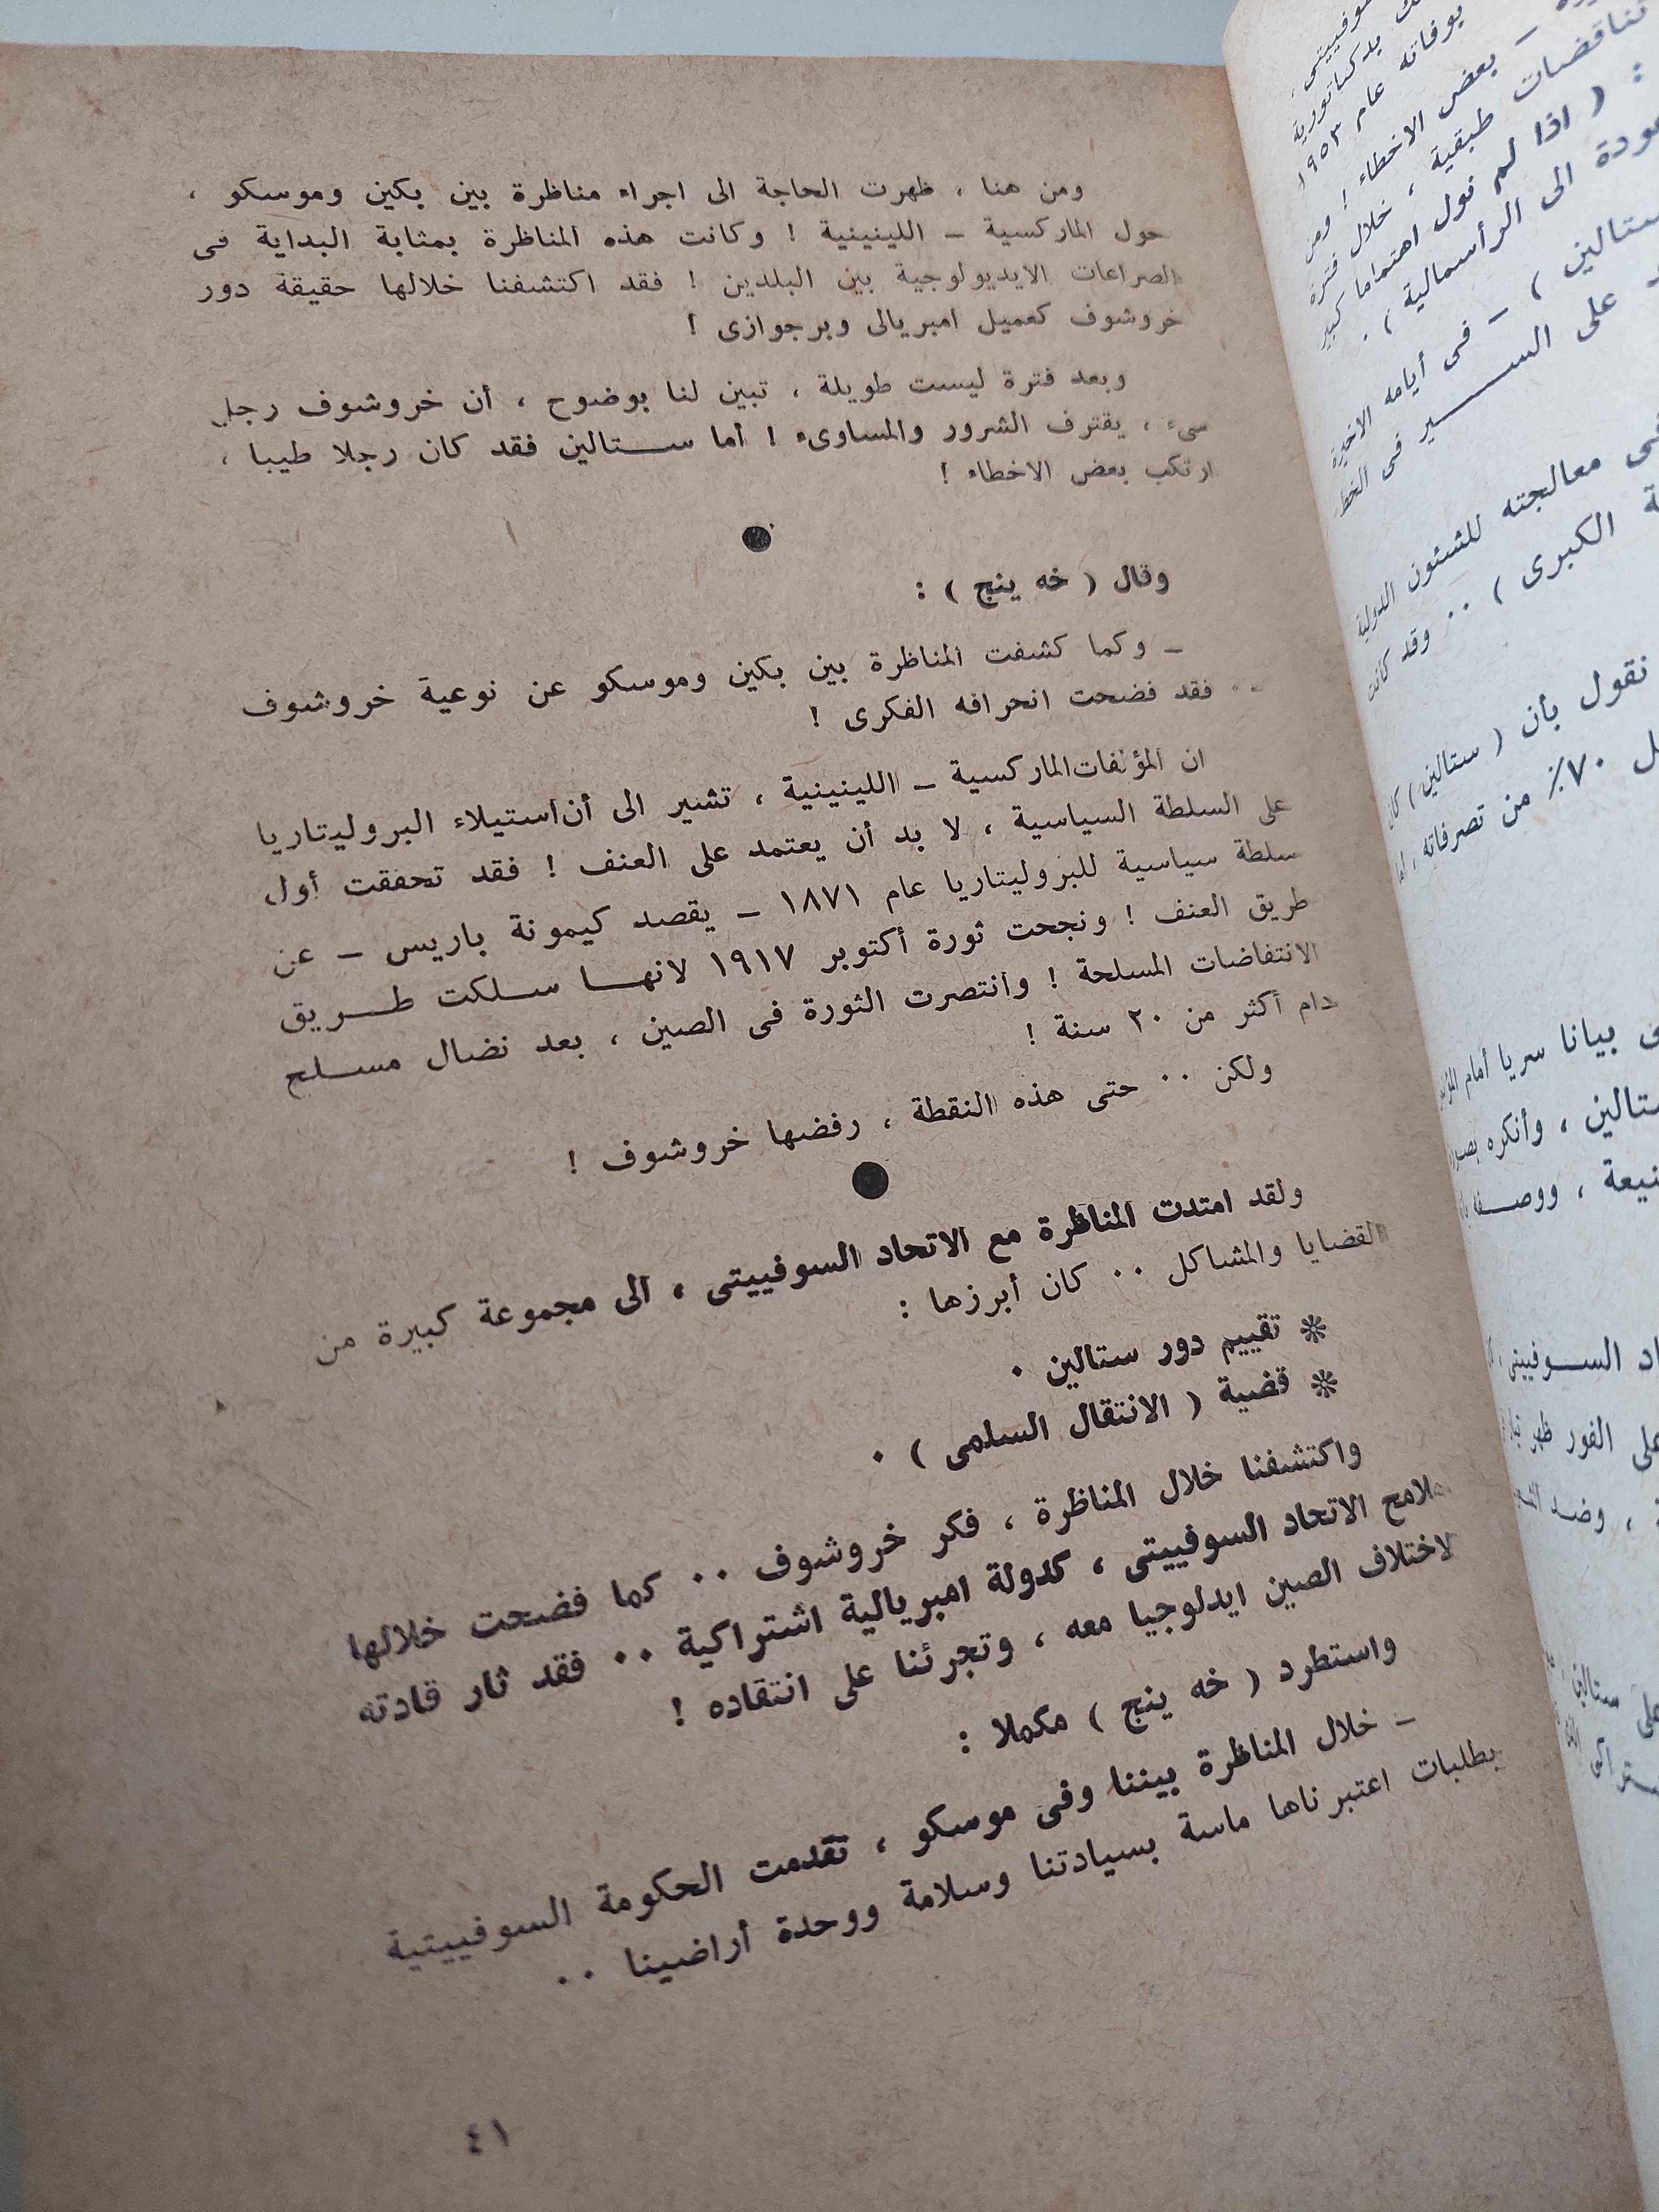 ومن هنا ، ظهرت الحاجة الى اجراء مناظرة بين بكين وموسكو ،
حول الماركسية – اللينينية ! وكانت هذه المناظرة بمثابة البداية فى
الصراعات الايديولوجية بين البلدين ! فقد اكتشفنا خلالها حقيقة دور
خروشوف كعميل امبريالى وبرجوازى !
وبعد فترة ليست طويلة ، تبين لنا بوضوح ، أن خروشوف رجل
سىء ، يقترف الشرور والمساوىء ! أما ستالين فقد كان رجلا طيبا ،
ارتكب بعض الاخطاء !
وقال ( خه ينج ) :
– وكما كشفت المناظرة بين بكين وموسكو عن نوعية خروشوف
٠٠ فقد فضحت انحرافه الفكرى !
ان المؤلفات الماركسية – اللينينية ، تشير الى أن استيلاء البروليتاريا
على السلطة السياسية ، لا بد أن يعتمد على العنف ! فقد تحققت أول
سلطة سياسية للبروليتاريا عام ١٨٧١ – يقصد كيمونة باريس – عن
طريق العنف ! ونجحت ثورة أكتوبر ١٩١٧ لانها سلكت طريق
الانتفاضات المسلحة ! وانتصرت الثورة فى الصين ، بعد نضال مسلح
دام أكثر من ٢٠ سنة !
ولكن ٠٠ حتى هذه النقطة ، رفضها خروشوف !
ولقد امتدت المناظرة مع الاتحاد السوفييتى ، الى مجموعة كبيرة من
القضايا والمشاكل ٠٠ كان أبرزها :
※ تقييم دور ستالين ٠
※ قضية ( الانتقال السلمى ) ٠
واكتشفنا خلال المناظرة ، فكر خروشوف ٠٠ كما فضحت خلالها
ملامح الاتحاد السوفييتى ، كدولة امبريالية اشتراكية ٠٠ فقد ثار قادته
لاختلاف الصين ايدلوجيا معه ، وتجرئنا على انتقاده !
واستطرد ( خه ينج ) مكملا :
– خلال المناظرة بيننا وفى موسكو ، تقدمت الحكومة السوفييتية
بطلبات اعتبرناها ماسة بسيادتنا وسلامة ووحدة أراضينا ٠٠
٤١
يوفاته عام ١٩٥٣
– بعض الاخطاء ! ومن
تناقضات طبقية ، خلال فترة
: ( اذا لم نول اهتماما كبير
عودة الى الرأسمالية ) ٠
ستالين ) – فى أيامه الاخيرة
على السير فى الخط
فى معالجته للشئون الدولية
الكبرى ) ٠٠ وقد كانت
نقول بأن ( ستالين ) كان
٧٠٪ من تصرفاته ، اما
بيانا سريا أمام المؤتمر
ستالين ، وأنكره
السوفييتى ،
على الفور ظهر
، وضد
على ستالين